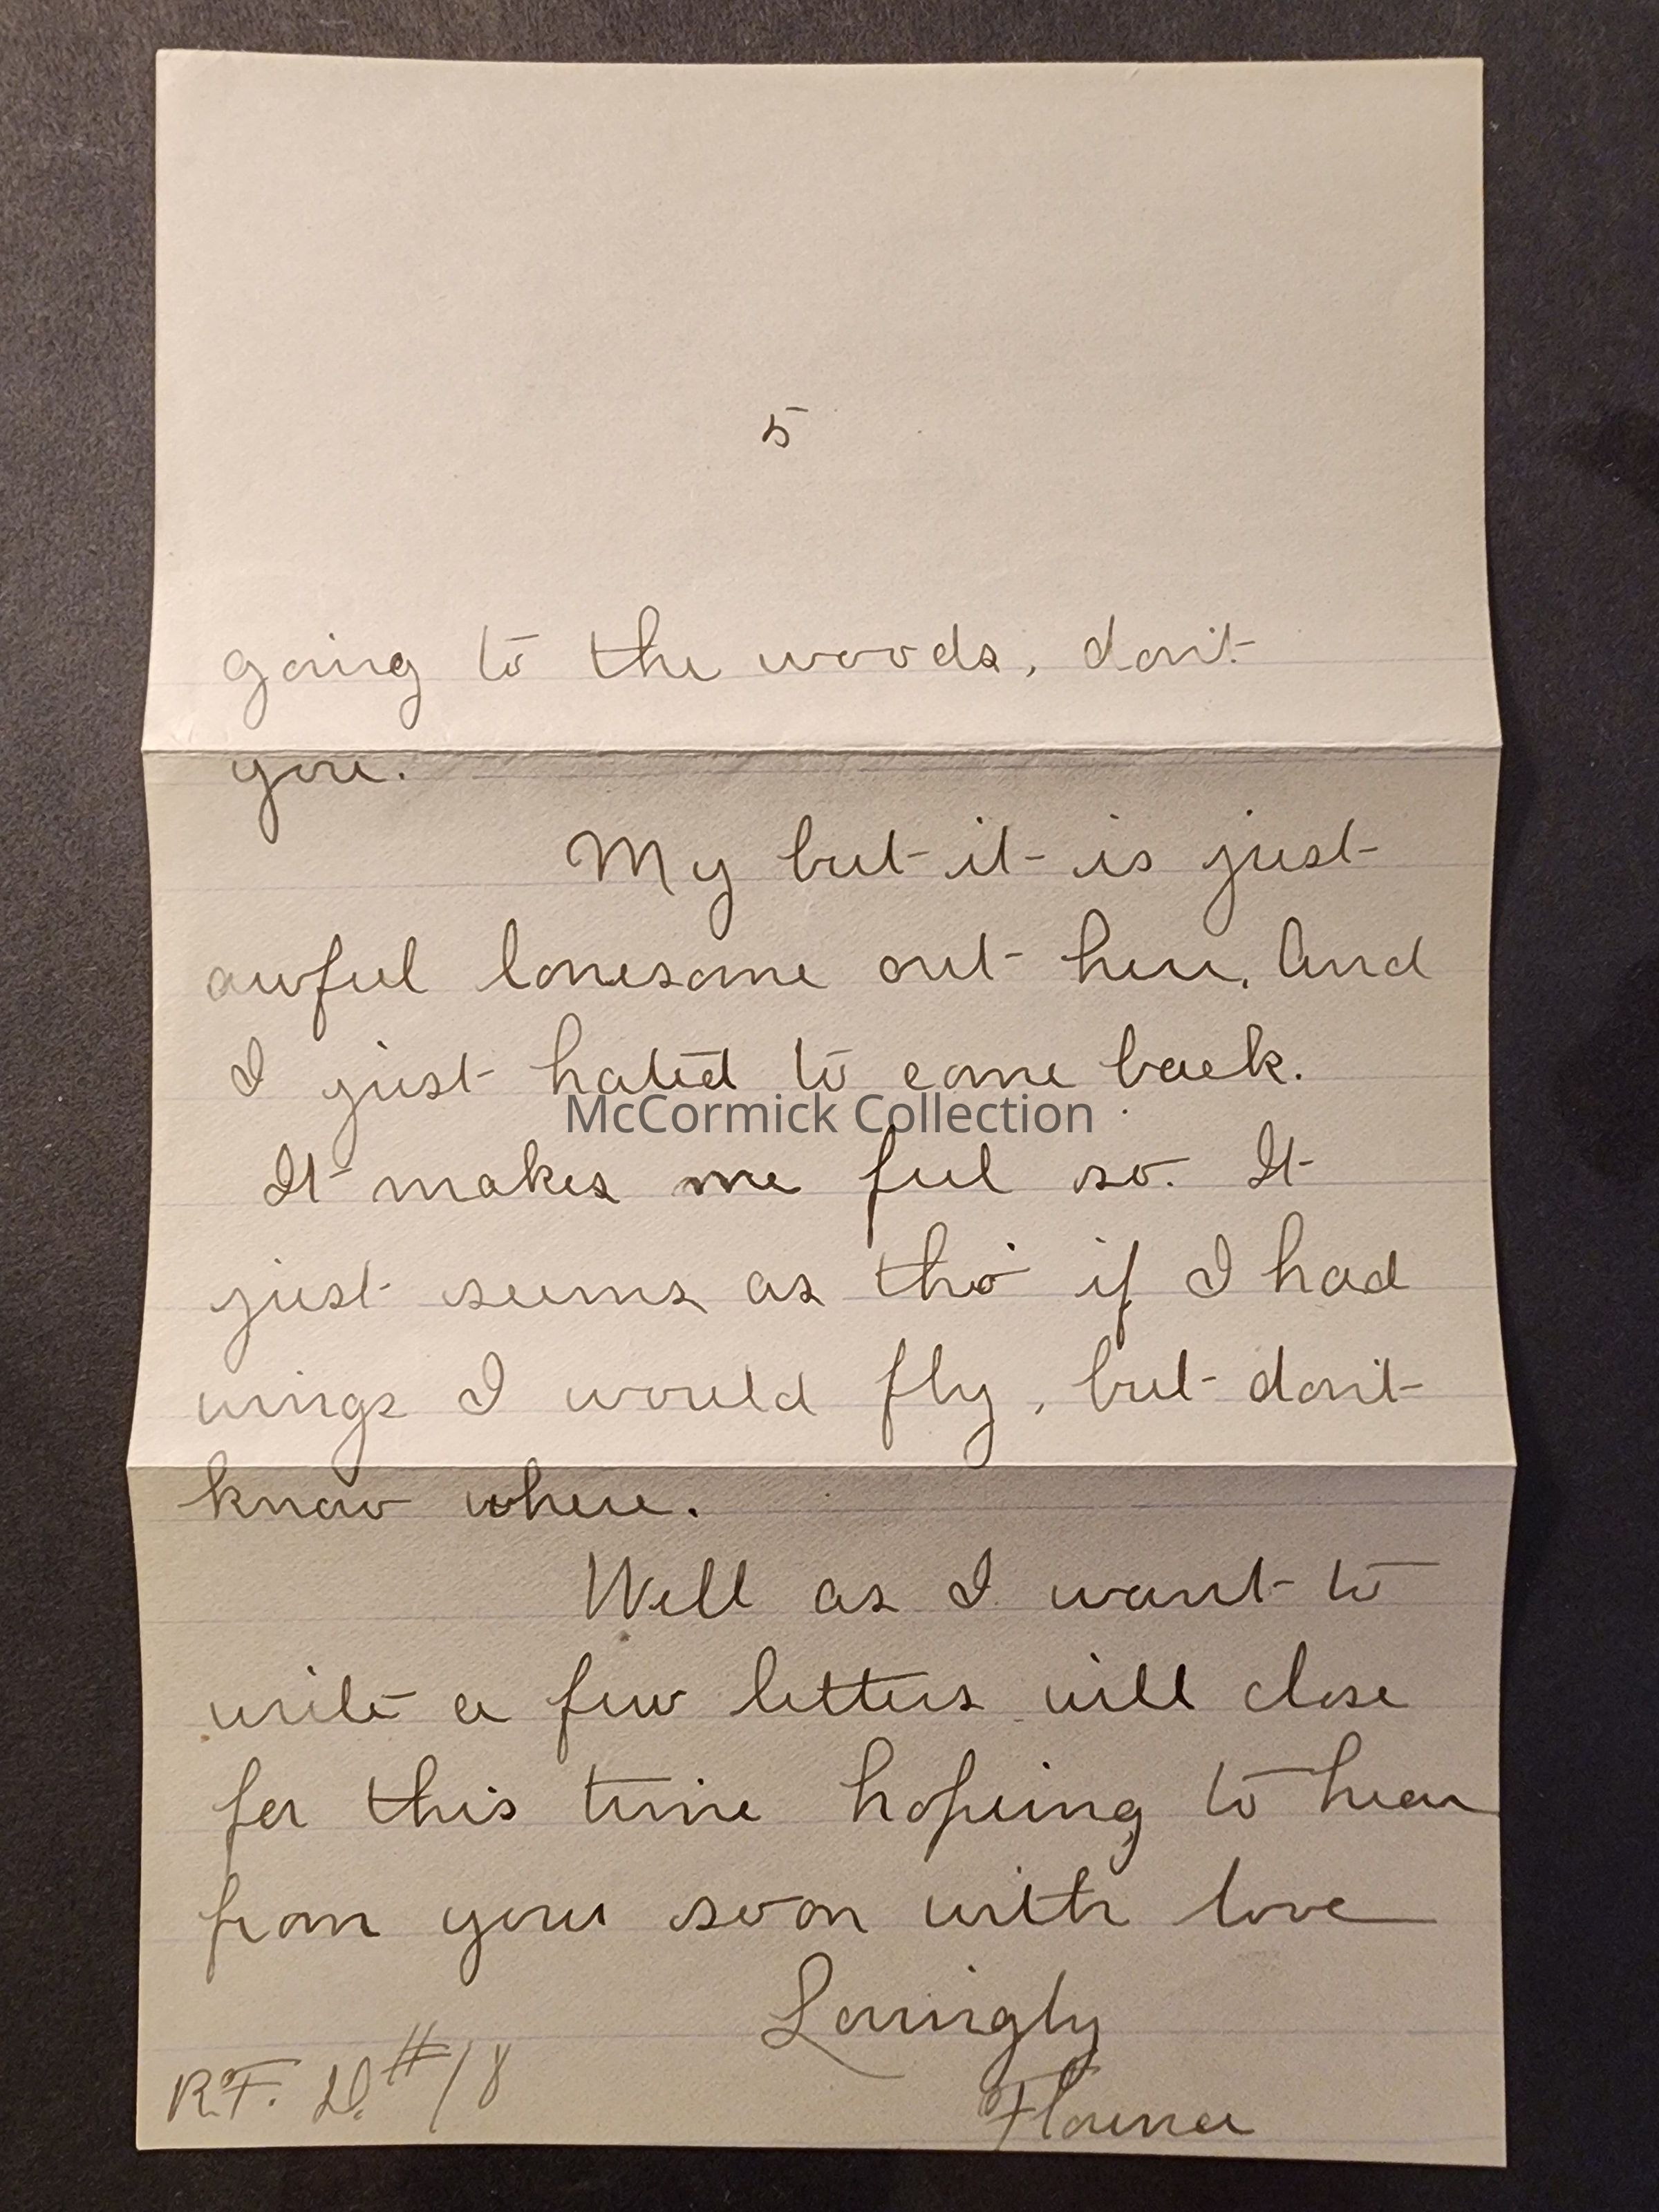 5
going to the woods, don't
you.
My but it is just
awful lonesome out here. And
I just hated to come back.
McCormick Collection
It makes me feel so. It
just seems as tho' if I had
wings I would fly, but don't
know where.
Well as I want to
write a few letters will close
for this time hoping to hear
from you soon with love
Lovingly
R.F.D. #18